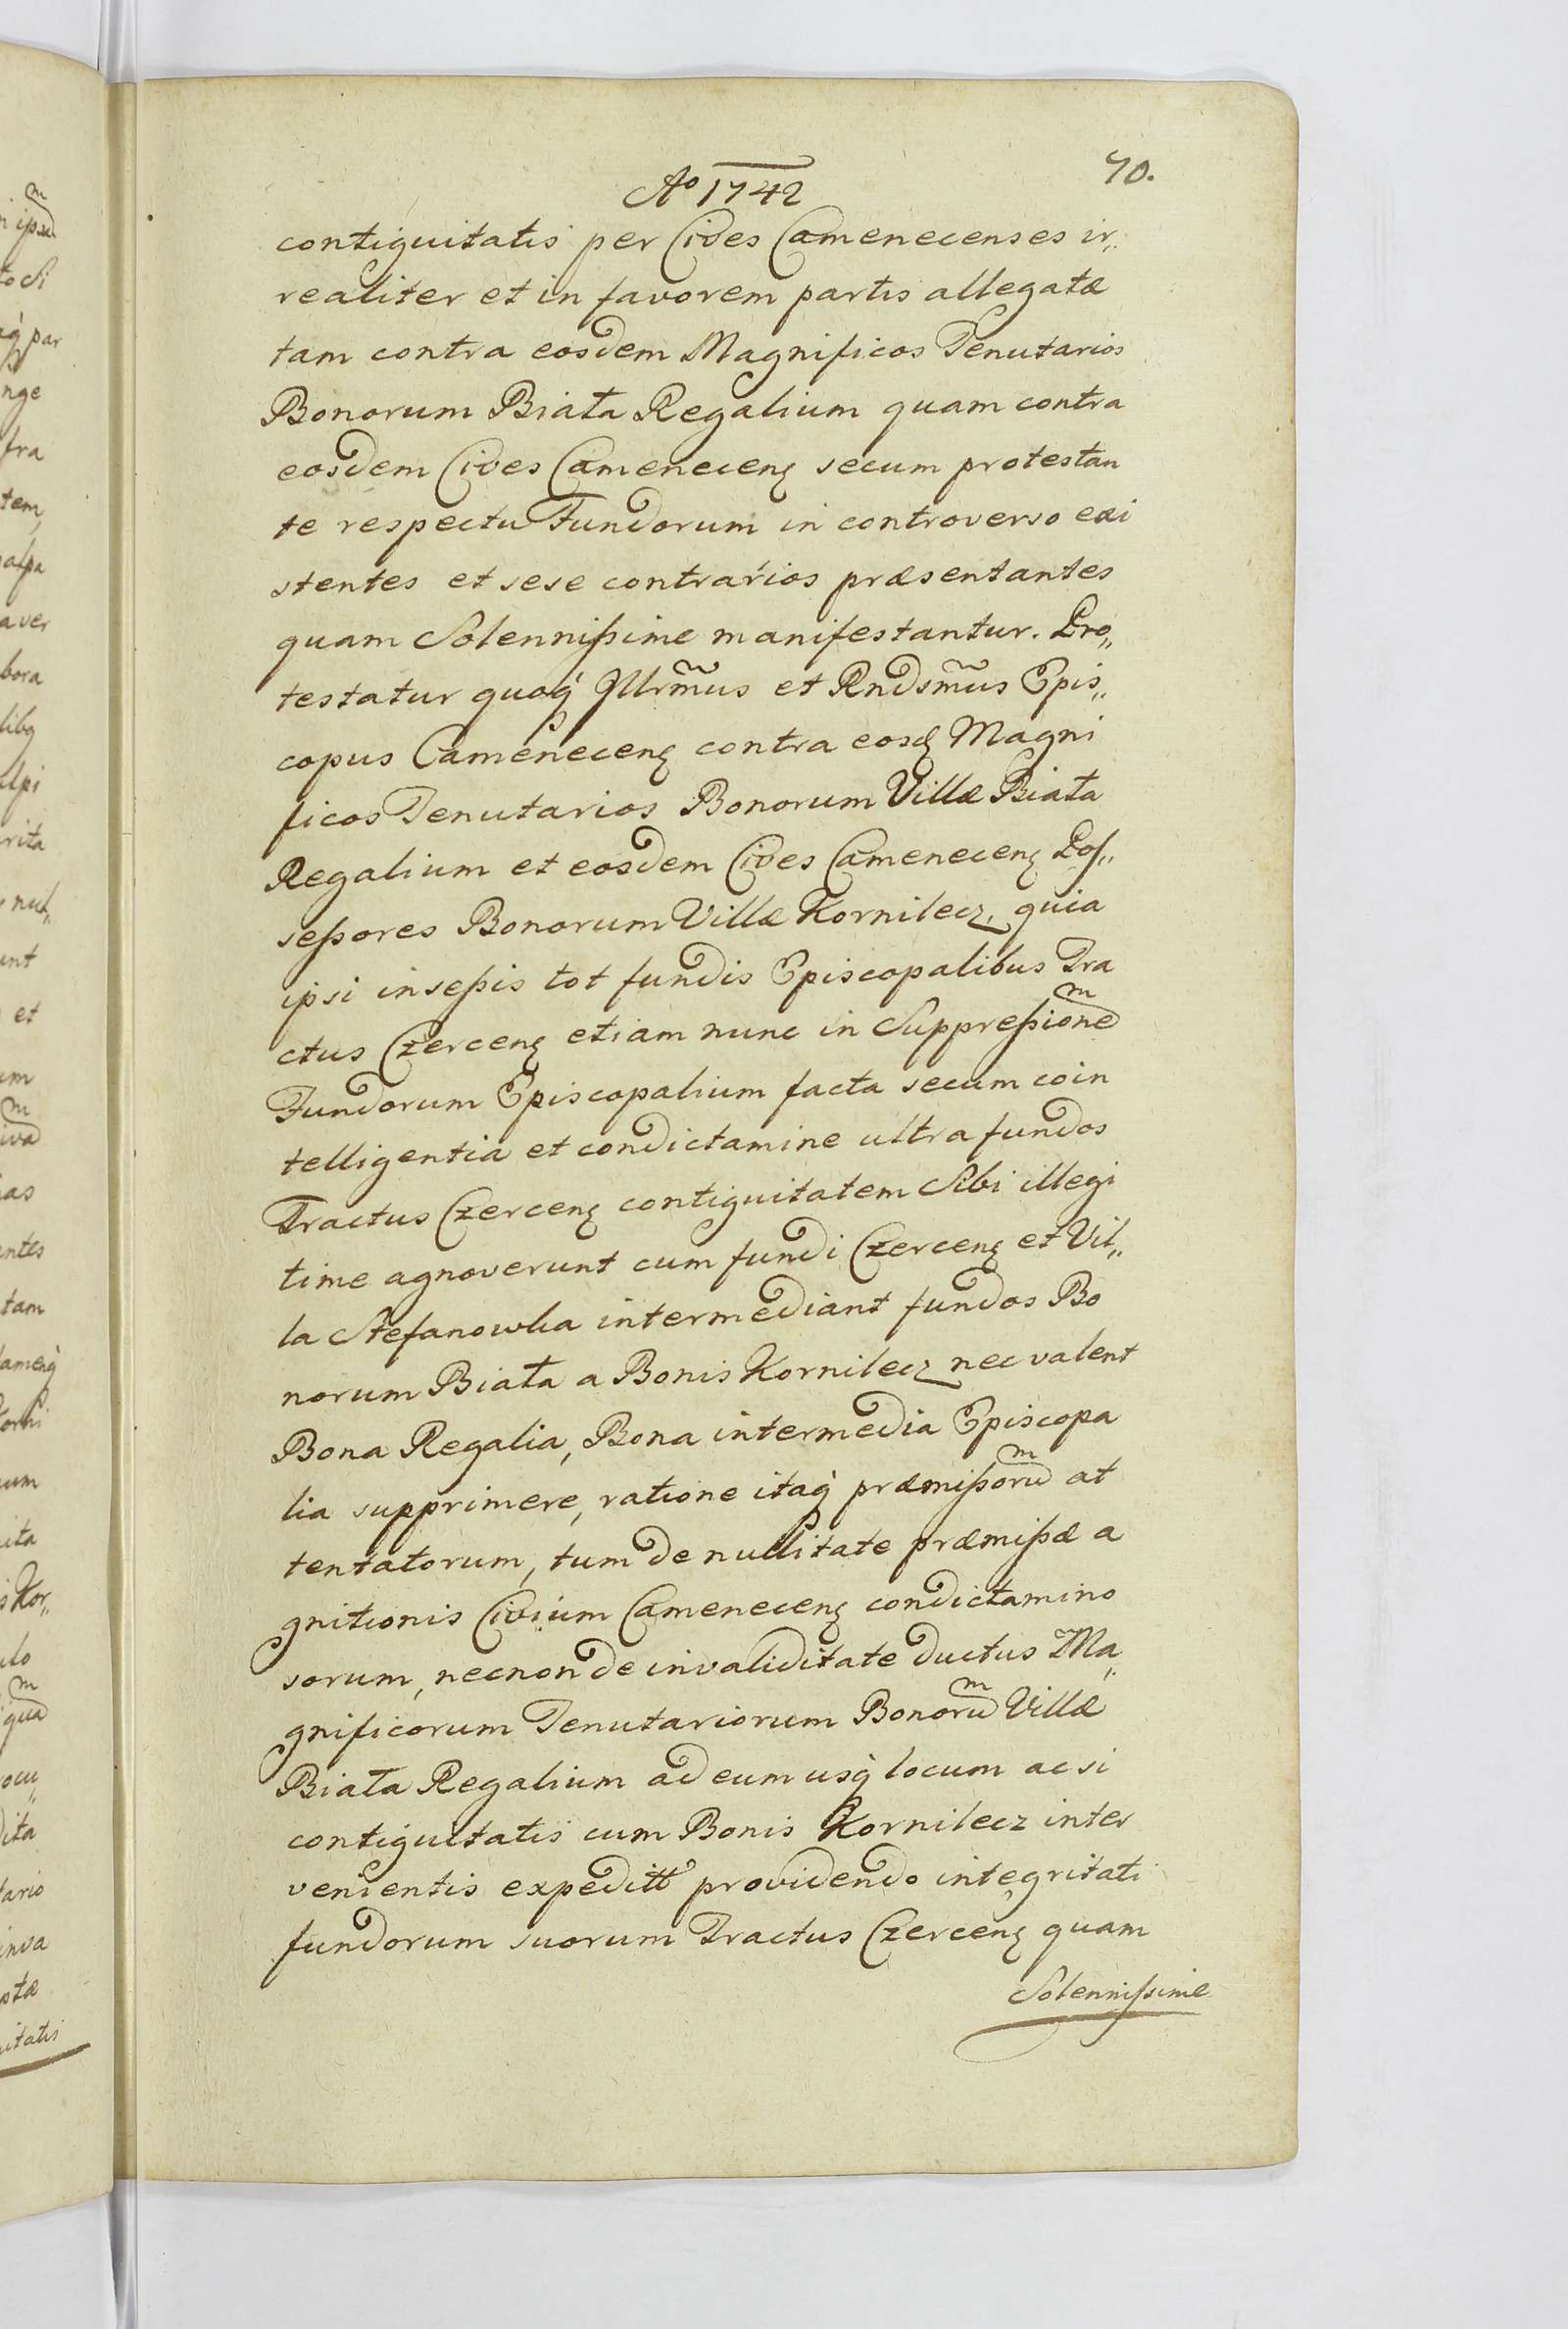 70.
Aº 1742
contiguitatis per Cives Camenecenses ir„
realiter et in favorem partis allegatæ
tam contra eosdem Magnificos Tenutarios
Bonorum Biała Regalium quam contra
eosdem Cives Cameneceng secum protestan
te respectu Fundorum in controverso exi
stentes et sese contrarios præsentantes
quam Solennißime manifestantur. Pro„
testatur quoq̀ Jllrm̃us et Rndsm̃us Epis„
copus Cameneceng contra eosd Magni
ficos Tenutarios Bonorum Villæ Biała
Regalium et eosdem Cives Cameneceng Pos„
seßores Bonorum Villæ Kornilecz, quia
ipsi inseßis tot fundis Episcopalibus Tra
ctus Czerceng etiam nunc in Suppreßionem
Fundorum Episcopalium facta secum coin
telligentia et condictamine ultra fundos
Tractus Czerceng contiguitatem Sibi illegi
time agnoverunt cum fundi Czerceng et Vil„
la Stefanowka intermediant fundos Bo
norum Biała a Bonis Kornilecz nec valent
Bona Regalia, Bona intermedia Episcopa
lia supprimere, ratione itaq̀ præmißorum at
tentatorum, tum de nullitate præmißæ a
gnitionis Civium Cameneceng condictamino
sorum, necnon de invaliditate ductus Ma„
gnificorum Tenutariorum Bonorum Villæ
Biała Regalium ad eum usq̀ locum ac si
contiguitatis cum Bonis Kornilecz inter
venientis expeditt providendo integritati
fundorum suorum Tractus Czerceng quam
Solennißime